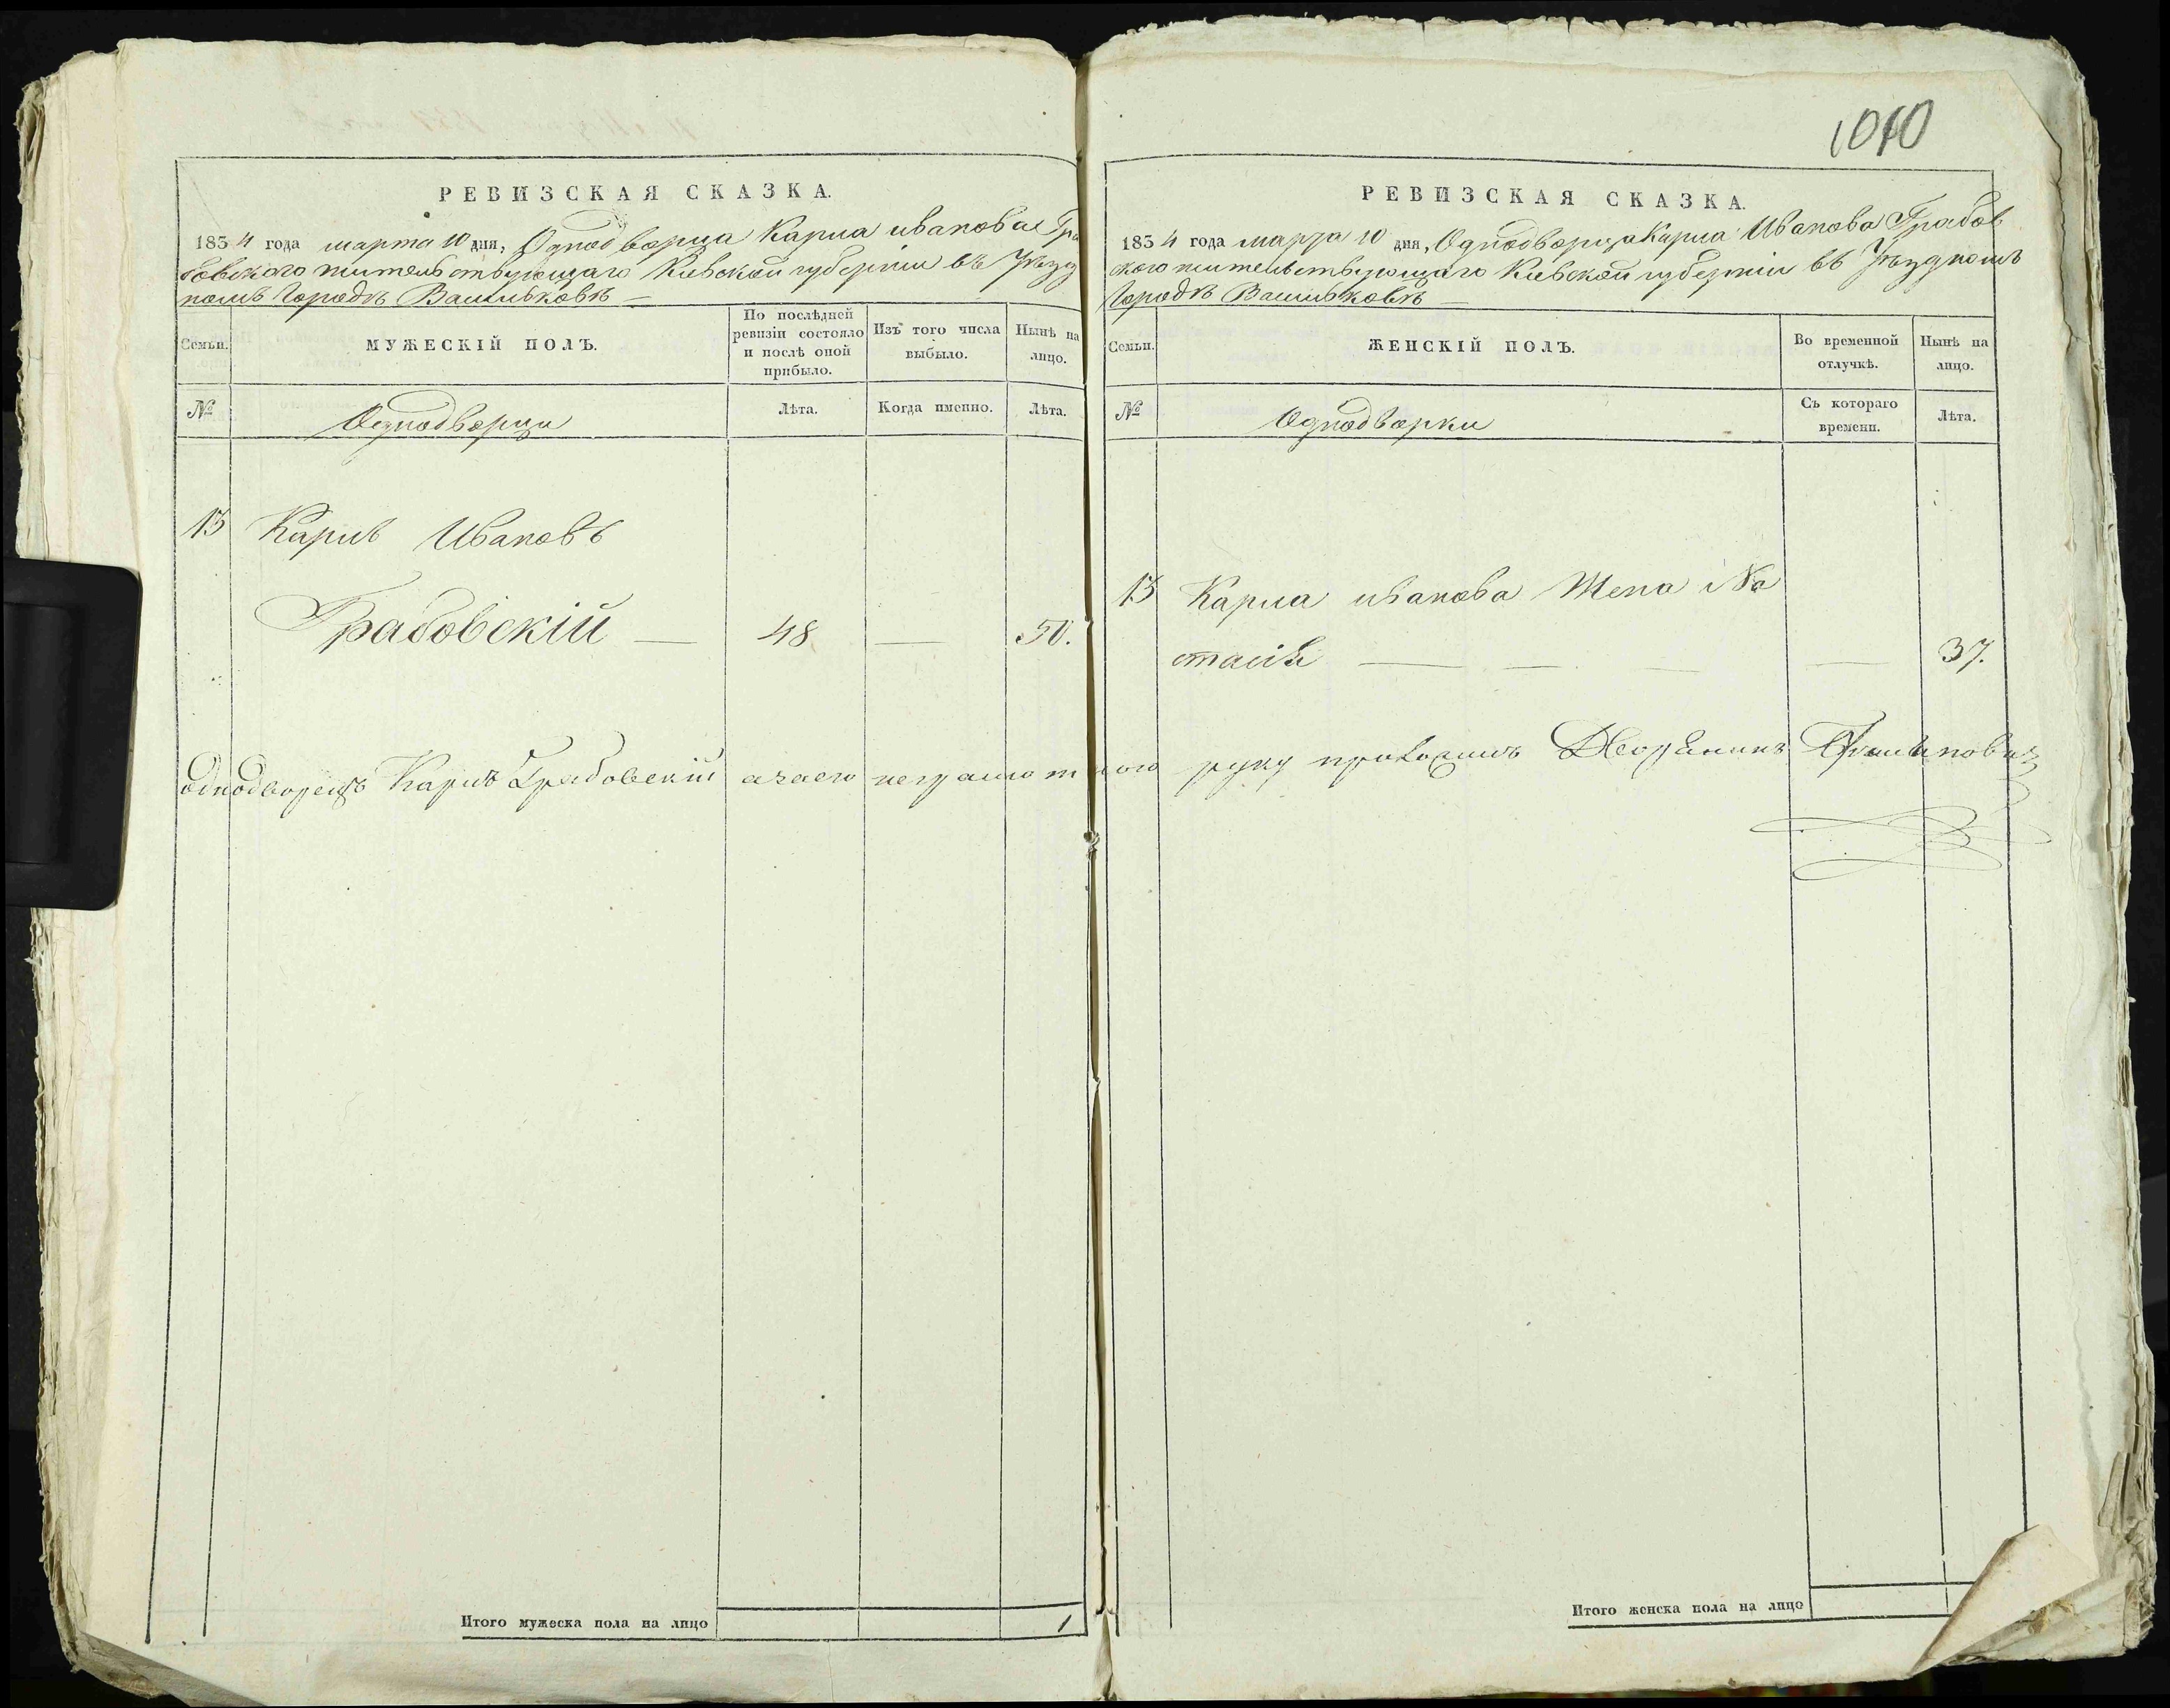 РЕВИЗСКАЯ СКАЗКА.
1834 года марта 10 дня, Однодворца Карла иванова Гра
бовского жительствующаго Киевской губерніи въ Уезд
номъ Городѣ Васильковѣ —
Семьи.
МУЖЕСКІЙ ПОЛЪ.
По послѣдней
ревизіи состояло
и послѣ оной
прибыло.
Изъ того числа
выбыло.
Нынѣ на
лицо.
№
Однодворци
Лѣта.
Когда именно.
Лѣта.
13 Карлъ Ивановъ
Грабовскій — 48 — 50.
Однодворецъ Карлъ Грабовскій азаего неграмотного руку приложилъ Дворенинъ
Итого мужеска пола на лицо 1
1010
РЕВИЗСКАЯ СКАЗКА.
1834 года марта 10 дня, Однодворца Карла Иванова Грабов
ского жительствующаго Киевской губерніи въ Уездномъ
Городѣ Васильковѣ —
Семьи.
ЖЕНСКІЙ ПОЛЪ.
Во временной
отлучкѣ.
Нынѣ на
лицо.
№
Однодворки
Съ котораго
времени.
Лѣта.
13 Карла иванова Жена На
стасія — — — — 37.
Итого женска пола на лицо